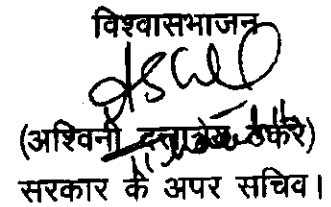 विश्वासभाजन
(अश्विनी दत्तात्रेय ठाकरे)
सरकार के अपर सचिव।